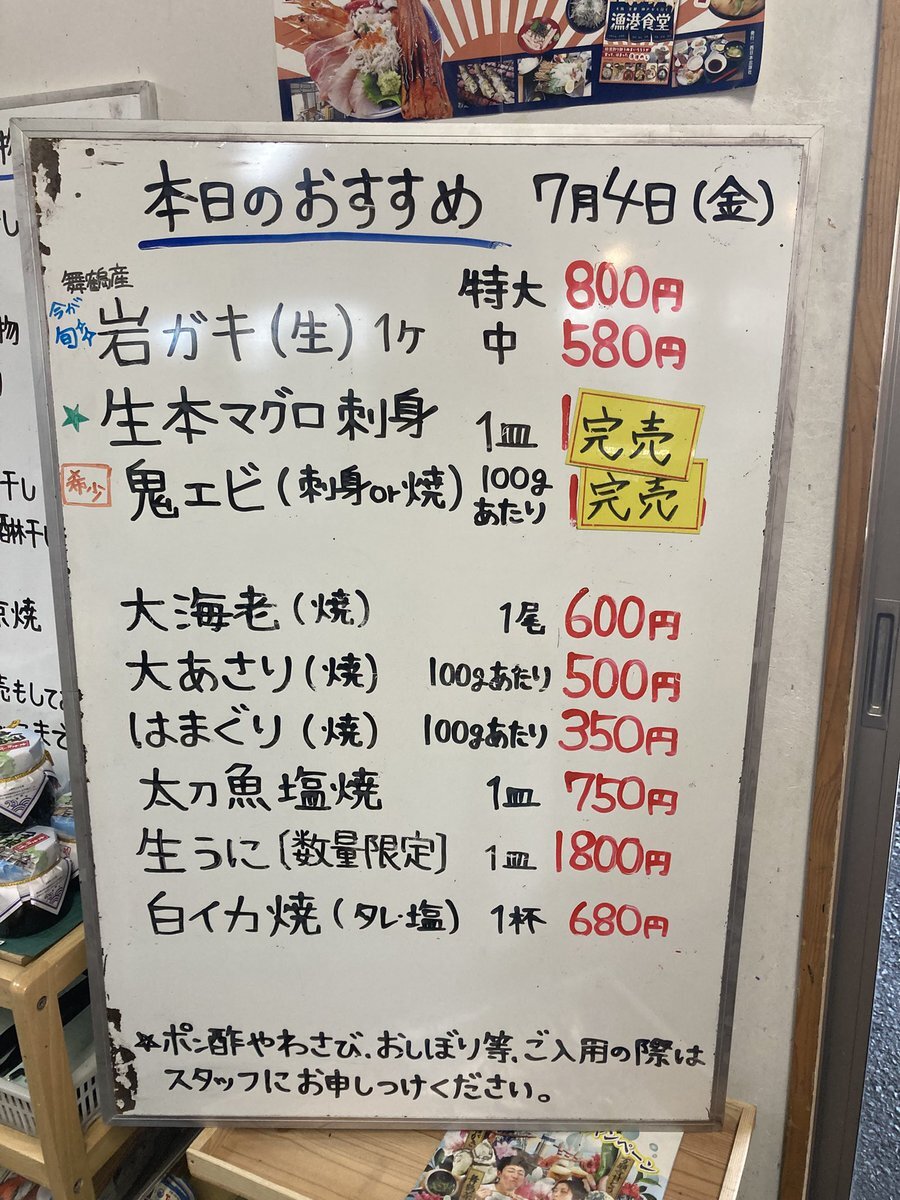 漁港食堂
本日のおすすめ 7月4日(金)
舞鶴産
今が旬
岩ガキ(生) 1ケ 特大 800円
中 580円
★生本マグロ刺身 1皿 完売
希少 鬼エビ(刺身or焼) 100gあたり 完売
大海老(焼) 1尾 600円
大あさり(焼) 100gあたり 500円
はまぐり(焼) 100gあたり 350円
太刀魚塩焼 1皿 750円
生うに[数量限定] 1皿 1800円
白イカ焼(タレ・塩) 1杯 680円
☆ポン酢やわさび、おしぼり等、ご入用の際は
スタッフにお申しつけください。